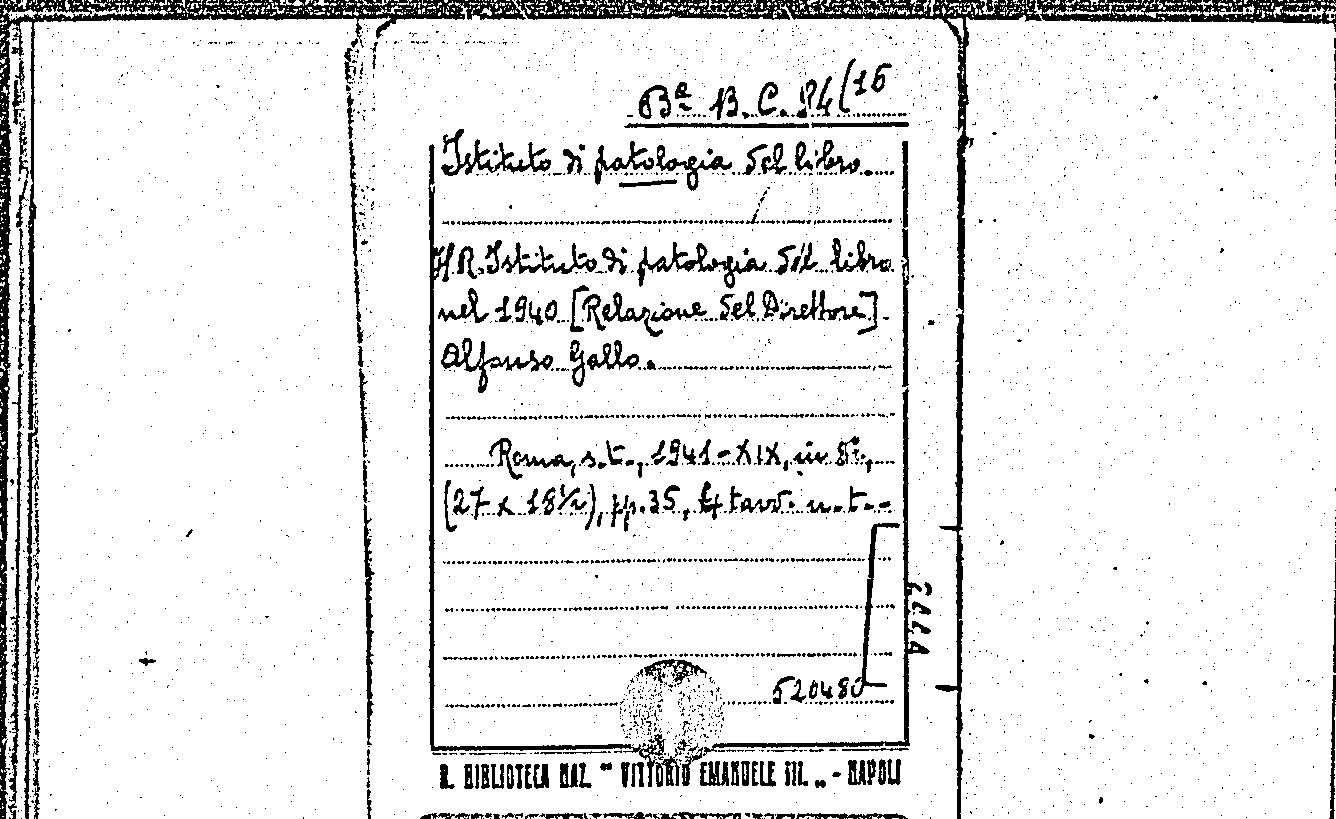 Bª B. C. 84(16
Istituto di patologia del libro.
Il R. Istituto di patologia del libro
nel 1940 [Relazione del Direttore]
Alfonso Gallo.
Roma, s.t., 1941-XIX, in 8º,
(27 x 18½), pp. 35, 4 tavv. n. t.-
520480
R. BIBLIOTECA NAZ. " VITTORIO EMANUELE III. „ - NAPOLI